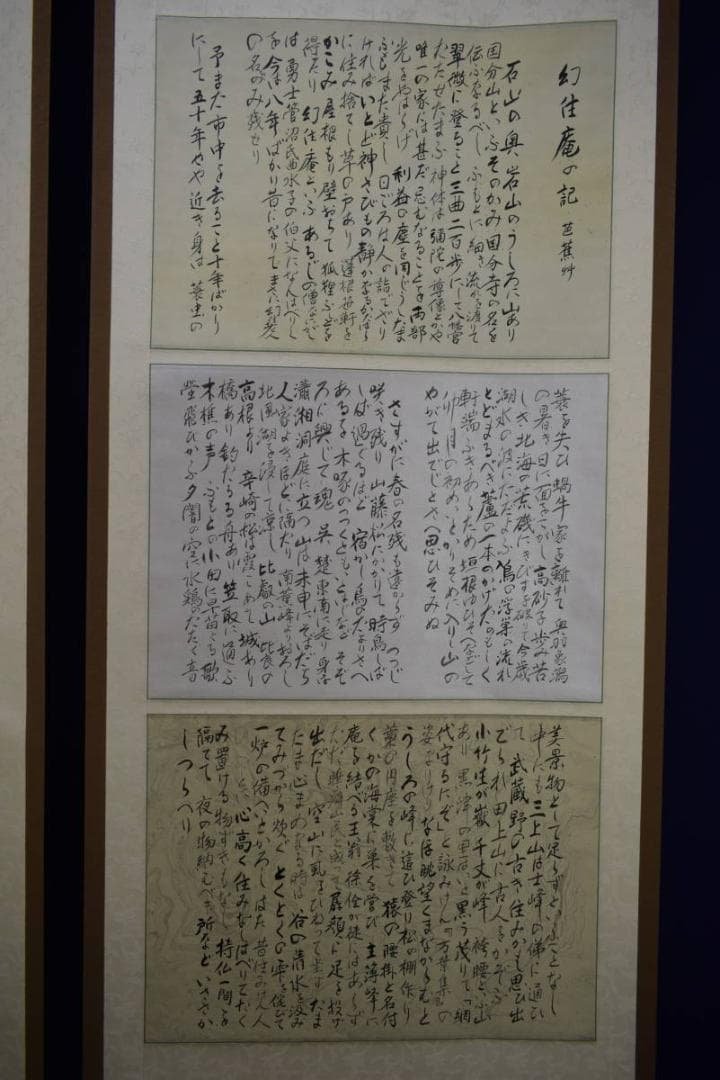 幻住庵の記 芭蕉艸
石山の奥岩山のうしろに山あり
国分山といふそのかみ国分寺の名を
伝ふなるべしふもとに細き流れを渡りて
翠微に登ること三曲二百歩にして八幡宮
たたせたまふ神体は弥陀の尊像とかや
唯一の家には甚だ忌むなることを両部
光をやはらげ利益の塵を同じうしたま
ふもまた貴し日ごろは人の詣でざり
ければいとど神さびもの静かなるかたはら
に住み捨てし草の戸あり蓬根笹軒を
かこみ屋根もり壁おちて狐狸ふしどを
得たり幻住庵といふあるじの僧なにがし
は勇士菅沼氏曲水子の伯父になんはべりし
を今は八年ばかり昔になりてまさに幻住老人
の名をのみ残せり
予また市中を去ること十年ばかり
にして五十年やや近き身は蓑虫の
蓑を失ひ蝸牛家を離れて奥羽象潟
の暑き日に面をこがし高砂子歩み苦
しき北海の荒磯にきびすを破りて今歳
湖水の波にただよふ鳰の浮巣の流れ
とどまるべき蘆の一本のかげたのもしく
軒端ふきあらため垣根ゆひそへなどして
卯月の初めいとかりそめに入りし山の
やがて出でじとさへ思ひそみぬ
さすがに春の名残も遠からずつつじ
咲き残り山藤松にかかりて時鳥しば
しば過ぐるほど宿かし鳥のたよりさへ
あるを木啄のつつくともいとはじなどそぞ
ろに興じて魂呉楚東南に走り身は
瀟湘洞庭に立つ山は未申にそばだち
人家よきほどに隔たり南薫峰よりおろし
北風湖を浸して涼し比叡の山比良の
高根より辛崎の松は霞こめて城あり
橋あり釣たるる舟あり笠取に通ふ
木樵の声ふもとの小田に早苗とる歌
蛍飛びかふ夕闇の空に水鶏のたたく音
美景物として足らずといふことなし
中にも三上山は士峰の俤に通ひ
て武蔵野の古き住みかも思ひ出
でられ田上山に古人をかぞふ
小竹生が嶽千丈が峰袴腰といふ山
あり黒津の里はいと黒う茂りて「網
代守るにぞ」と詠みけん万葉集の
姿なりけりなほ眺望くまなからむと
うしろの峰に這ひ登り松の棚作り
藁の円座を敷きて猿の腰掛と名付
くかの海棠に巣を営び主簿峰に
庵を結べる王翁徐佺が徒にはあらず
ただ睡癖山民と成つて孱顔に足を投げ
出だし空山に虱をひねつて坐すたま
たま心まめなる時は谷の清水を汲み
てみづから炊ぐとくとくの雫を侘びて
一炉の備へいとかろしはた昔住みけん人
の心高く住みなしはべりてたく
み置ける物ずきもなし持仏一間を
隔てて夜の物納むべき所などいささか
しつらへり